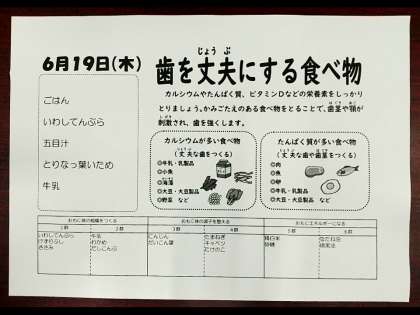 6月19日(木)
歯を丈夫にする食べ物
じょうぶ
カルシウムやたんぱく質、ビタミンDなどの栄養素をしっかり
とりましょう。かみごたえのある食べ物をとることで、歯茎や顎が
刺激され、歯を強くします。
ごはん
いわしてんぷら
五目汁
とりなっ葉いため
牛乳
カルシウムが多い食べ物
(丈夫な歯をつくる)
◎牛乳・乳製品
◎小魚
◎海藻
◎大豆・大豆製品
◎野菜 など
たんぱく質が多い食べ物
(丈夫な歯や歯茎をつくる)
◎肉
◎魚
◎卵
◎牛乳・乳製品
◎大豆・大豆製品 など
おもに体の組織をつくる
おもに体の調子を整える
おもにエネルギーになる
1群 2群 3群 4群 5群 6群
いわしてんぷら 牛乳 にんじん たまねぎ 精白米
けずりぶし わかめ だいこん葉 キャベツ 砂糖
ささみ だしこんぶ たけのこ